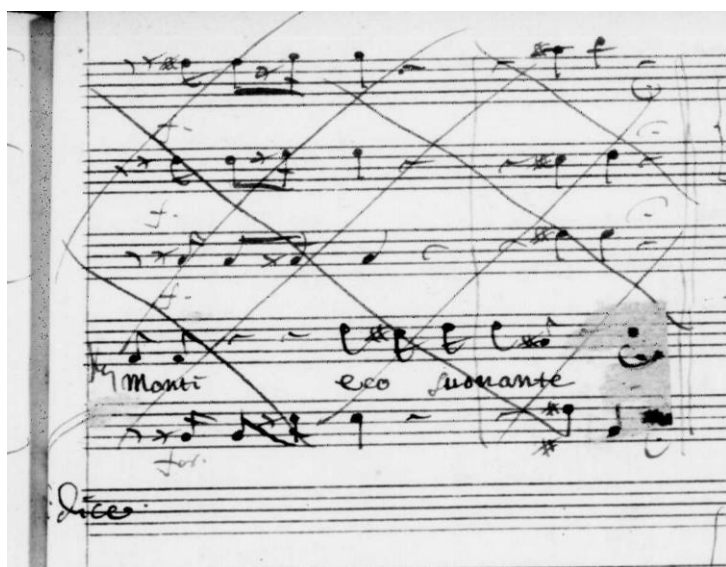 f.
f.
f.
Monti eco suonante
for.
dice